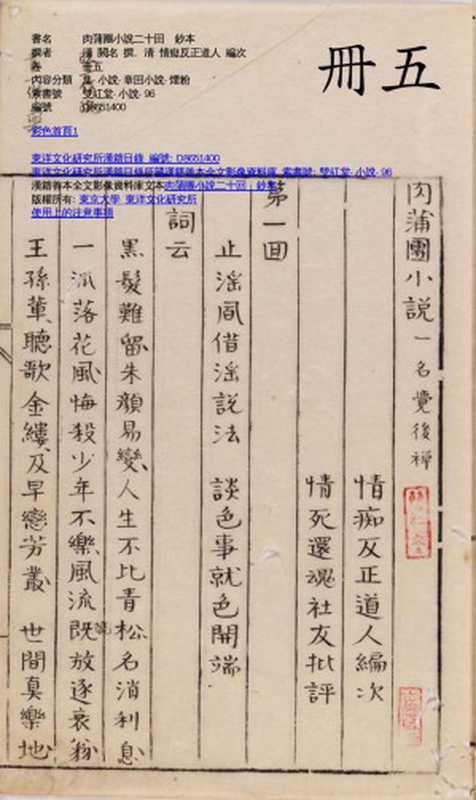 書名 肉蒲團小說二十回 鈔本
撰者 清 闕名 撰、清 情癡反正道人 編次
卷 五
內容分類 集-小說-章回小說-煙粉
索書號 雙紅堂-小說-96
編號 D8651400
彩色首頁1
東洋文化研究所漢籍目錄 編號: D8651400
東洋文化研究所漢籍目錄所藏漢籍善本全文影像資料庫 索書號: 雙紅堂-小說-96
漢籍善本全文影像資料庫文本肉蒲團小說二十回, 鈔本
版權所有: 東京大學 東洋文化研究所
使用上的注意事項
五冊
肉蒲團小說 一名覺後禪
情痴反正道人編次
情死還魂社友批評
第一回
止滛風借滛說法 談色事就色開端
詞云
黑髮難留朱顏易變人生不比青松名消利息
一派落花風悔殺少年不樂風流院放逐衰翁
王孫輩聽歌金縷及早戀芳叢 世間真樂地